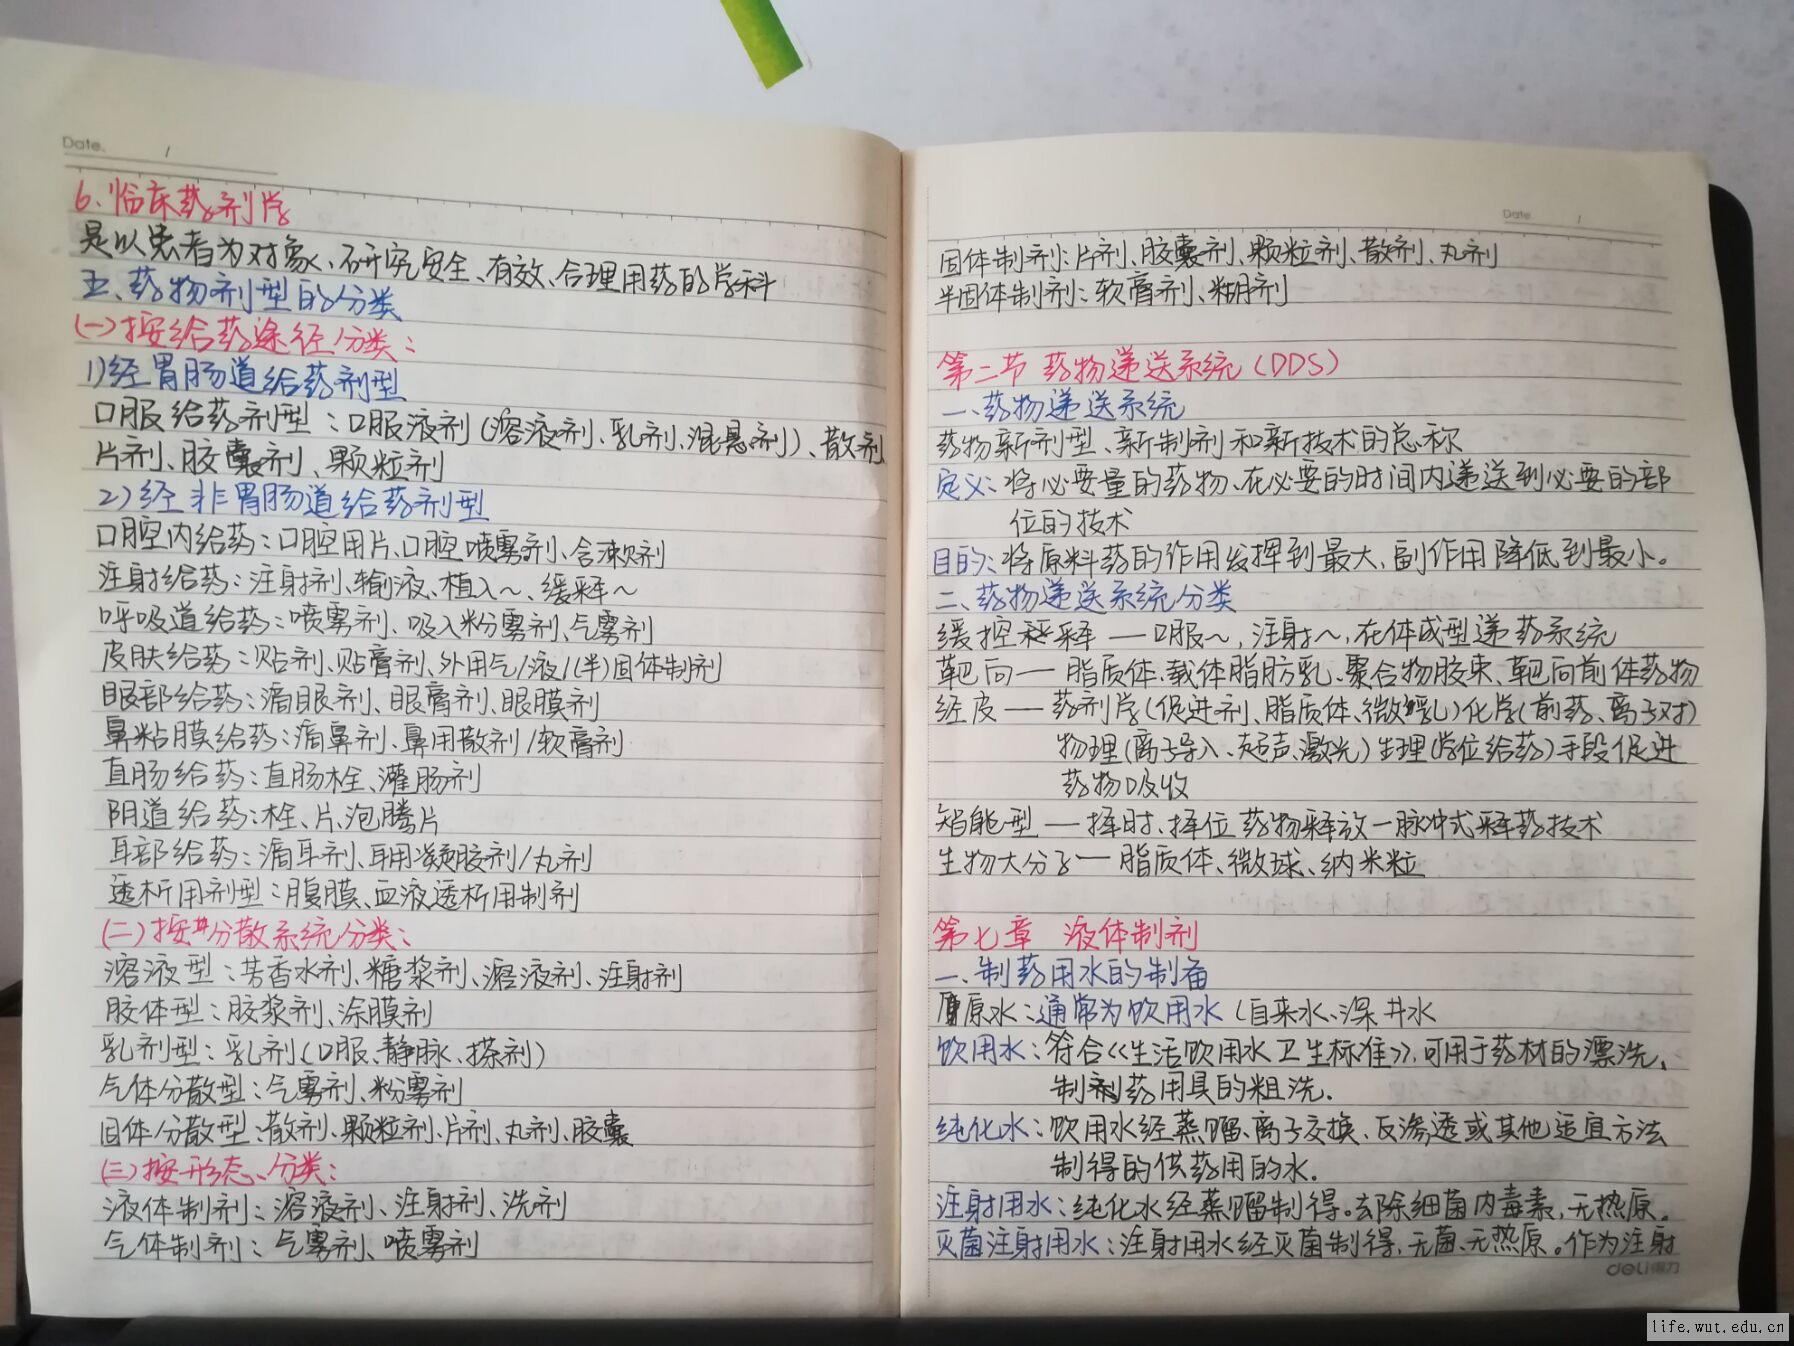 Date.
6. 临床药剂学
是以患者为对象、研究安全、有效、合理用药的学科
五、药物剂型的分类
(一)按给药途径分类:
1)经胃肠道给药剂型
口服给药剂型:口服液剂(溶液剂、乳剂、混悬剂)、散剂
片剂、胶囊剂、颗粒剂
2)经非胃肠道给药剂型
口腔内给药:口腔用片、口腔喷雾剂、含漱剂
注射给药:注射剂、输液、植入~、缓释~
呼吸道给药:喷雾剂、吸入粉雾剂、气雾剂
皮肤给药:贴剂、贴膏剂、外用气/液/(半)固体制剂
眼部给药:滴眼剂、眼膏剂、眼膜剂
鼻粘膜给药:滴鼻剂、鼻用散剂/软膏剂
直肠给药:直肠栓、灌肠剂
阴道给药:栓、片、泡腾片
耳部给药:滴耳剂、耳用凝胶剂/丸剂
透析用剂型:腹膜、血液透析用制剂
(二)按分散系统分类:
溶液型:芳香水剂、糖浆剂、溶液剂、注射剂
胶体型:胶浆剂、涂膜剂
乳剂型:乳剂(口服、静脉、搽剂)
气体分散型:气雾剂、粉雾剂
固体分散型:散剂、颗粒剂、片剂、丸剂、胶囊
(三)按形态分类:
液体制剂:溶液剂、注射剂、洗剂
气体制剂:气雾剂、喷雾剂
Date.
固体制剂:片剂、胶囊剂、颗粒剂、散剂、丸剂
半固体制剂:软膏剂、糊剂
第二节 药物递送系统(DDS)
一、药物递送系统
药物新剂型、新制剂和新技术的总称
定义:将必要量的药物、在必要的时间内递送到必要的部
位的技术
目的:将原料药的作用发挥到最大,副作用降低到最小。
二、药物递送系统分类
缓控释 — 口服~,注射~,在体成型递药系统
靶向 — 脂质体、载体脂肪乳、聚合物胶束、靶向前体药物
经皮 — 药剂学(促进剂、脂质体、微乳)化学(前药、离子对)
物理(离子导入、超声、激光)生理(学位给药)手段促进
药物吸收
智能型 — 择时、择位药物释放—脉冲式释药技术
生物大分子 — 脂质体、微球、纳米粒
第七章 液体制剂
一、制药用水的制备
原水:通常为饮用水(自来水、深井水
饮用水:符合《生活饮用水卫生标准》,可用于药材的漂洗、
制药用具的粗洗.
纯化水:饮用水经蒸馏、离子交换、反渗透或其他适宜方法
制得的供药用的水.
注射用水:纯化水经蒸馏制得。去除细菌内毒素,无热原。
灭菌注射用水:注射用水经灭菌制得,无菌、无热原。作为注射
deli得力
life.wut.edu.cn